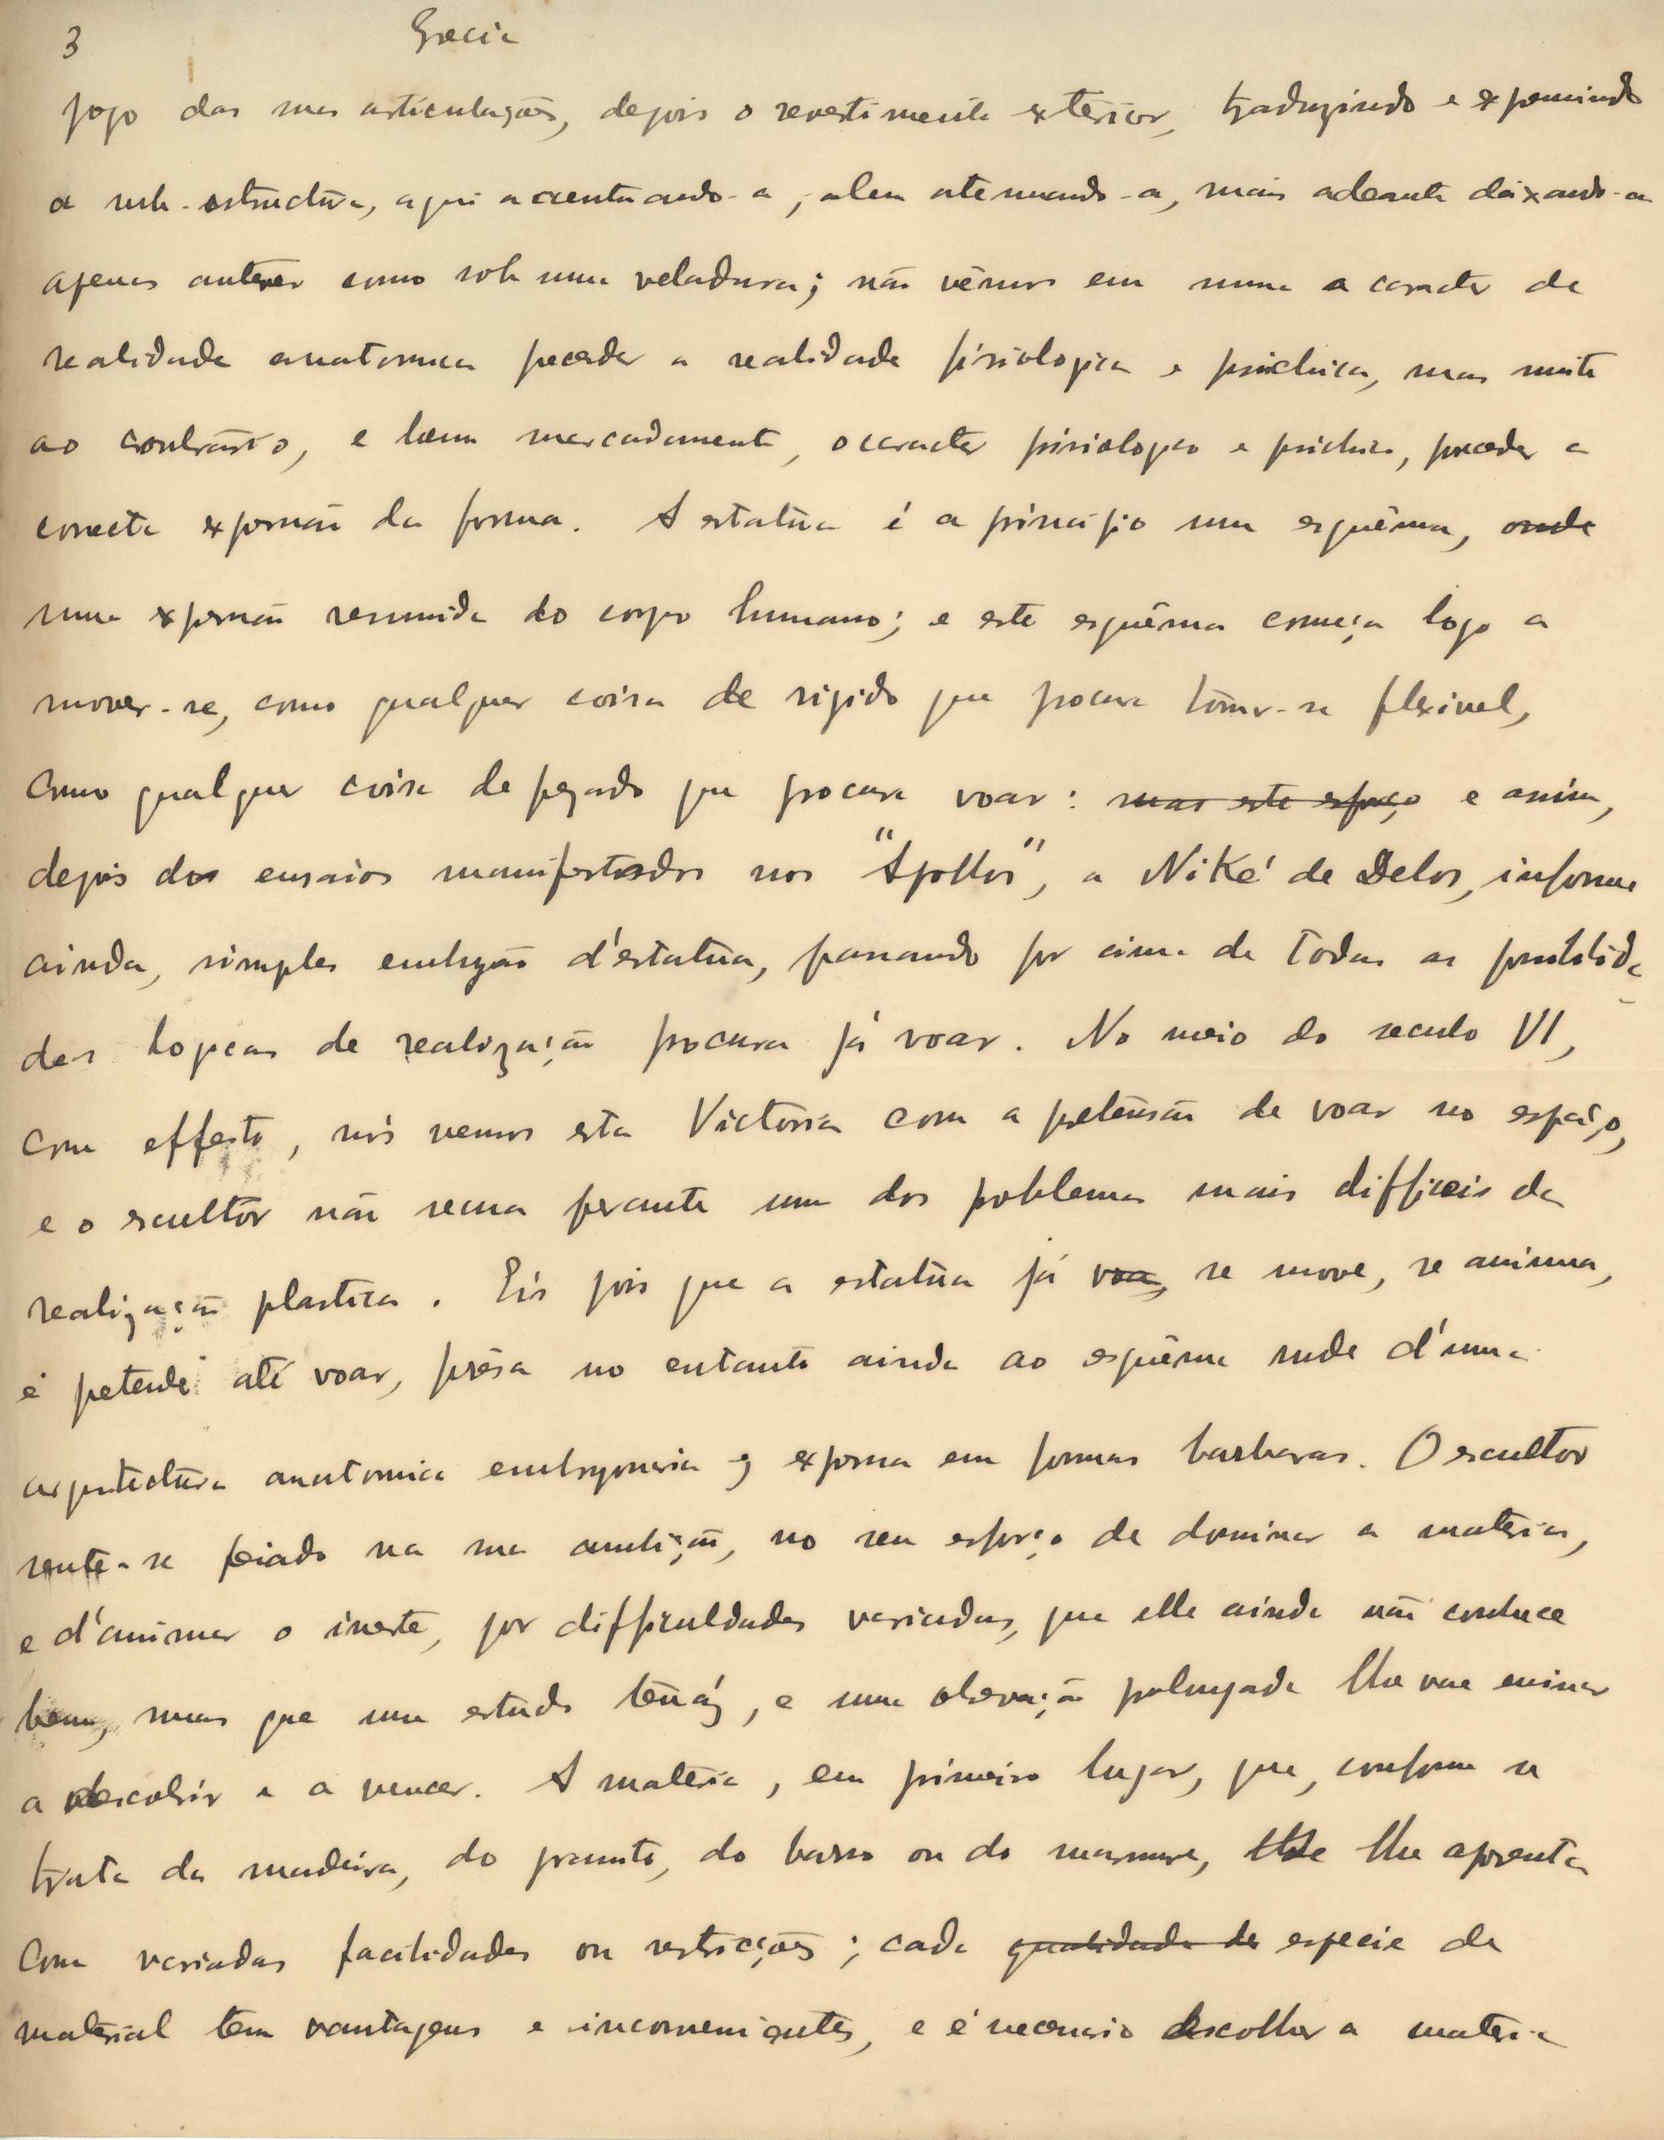 3 Grecia
jogo das suas articulações, depois o revestimento exterior, traduzindo e exprimindo
a sub-estructura, aqui accentuando-a, alem atenuando-a, mais adeante deixando-a
apenas antever como sob uma veladura; não vêmos em suma o caracter de
realidade anatomica preceder a realidade fisiologica e psichica, mas muito
ao contrário, e bem marcadamente, o caracter fisiologico e psichico, preceder a
correcta expressão da forma. A estatua é a princípio um esquêma, onde
uma expressão resumida do corpo humano; e este esquêma começa logo a
mover-se, como qualquer coisa de rigido que procura tornar-se flexivel,
como qualquer coisa de pezado que procura voar: mas este esforço e assim,
depois dos ensaios manifestados nos "Apollos", a Niké de Delos, informe
ainda, simples embryão d'estatua, passando por cima de todas as possibilida
des logicas de realização procura já voar. No meio do seculo VI,
com effeito, nós vemos esta Victoria com a pretensão de voar no espaço,
e o escultor não recua perante um dos problemas mais difficeis da
realização plastica. Eis pois que a estatua já voa, se move, se anima,
e pretende até voar, prêsa no entanto ainda ao esquêma rude d'uma
arquitectura anatomica embryonaria e expressa em formas barbaras. O escultor
sente-se peiado na sua ambição, no seu esforço de dominar a materia,
e d'animar o inerte, por difficuldades variadas, que elle ainda não conhece
bem, mas que um estudo tenáz, e uma observação prolongada lhe vae ensinar
a descobrir e a vencer. A materia, em primeiro lugar, que, conforme se
trata da madeira, do granito, do barro ou do marmore, lhe apresenta
com variadas facilidades ou restricções; cada qualidade de especie de
material tem vantagens e inconvenientes, e é necessario escolher a materia